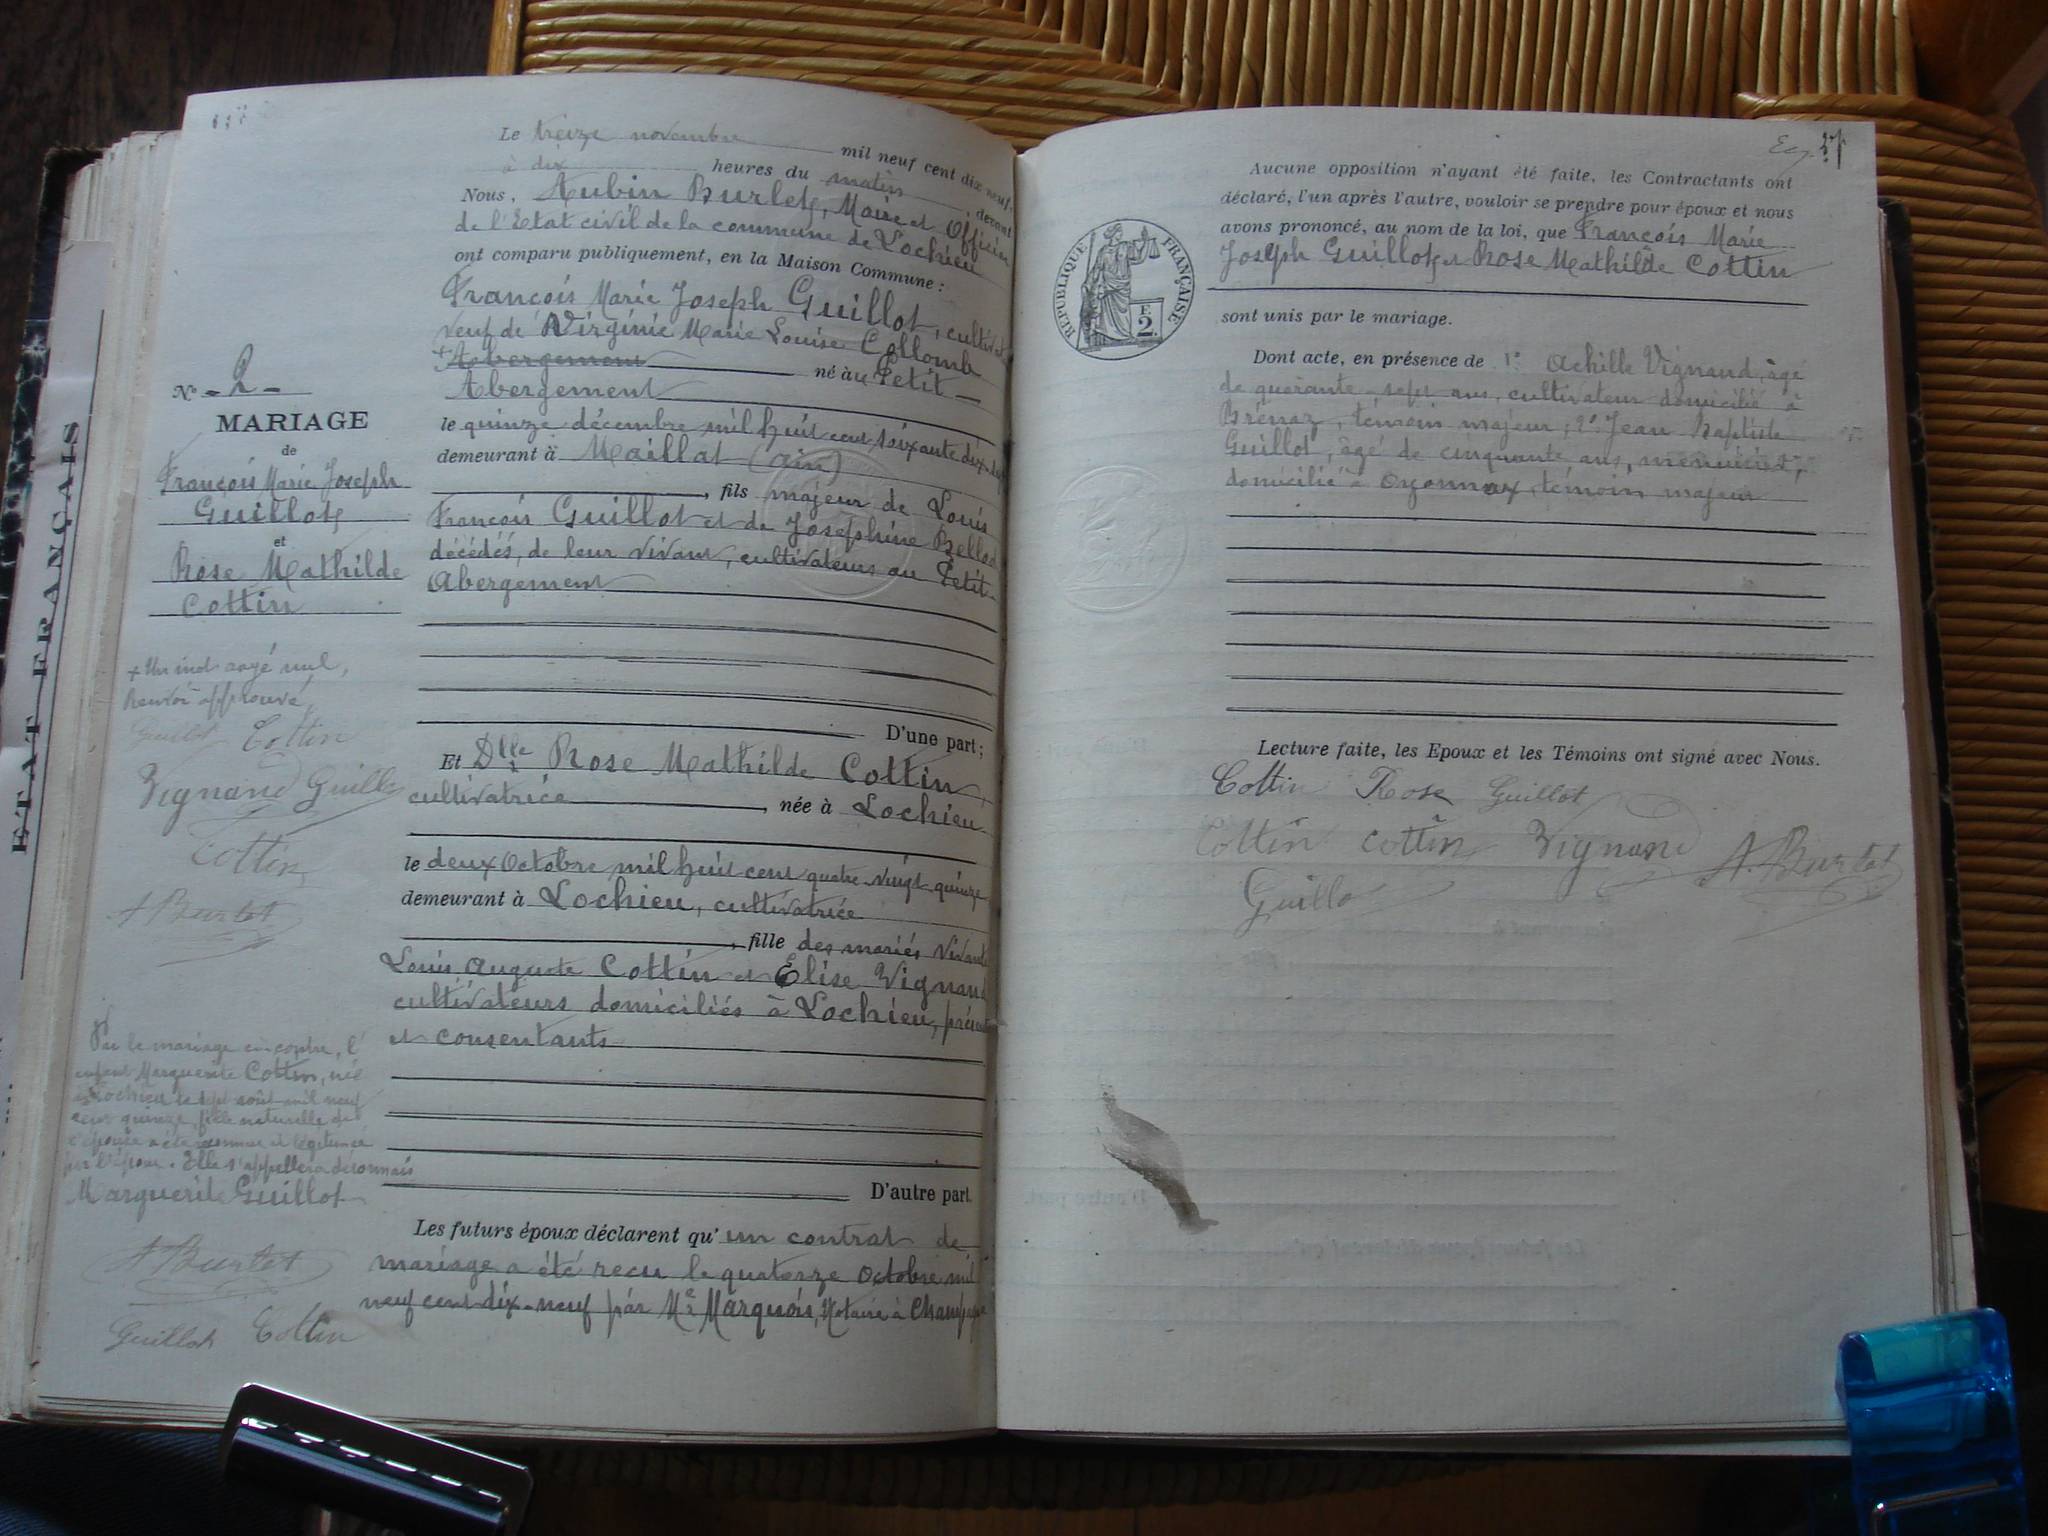 Le treize novembre mil neuf cent dix neuf
à dix heures du matin, devant
Nous, Aubin Burlet, Maire et Officier
de l'Etat civil de la commune de Lochieu
ont comparu publiquement, en la Maison Commune :
François Marie Joseph Guillot, cultivat
veuf de Virginie Marie Louise Collomb
+ Abergement né au Petit
Abergement
le quinze décembre mil huit cent soixante dix
demeurant à Maillat (ain)
, fils majeur de Louis
François Guillot et de Joséphine Bellod
décédés, de leur vivant, cultivateurs au Petit
Abergement
D'une part ;
Et Dlle Rose Mathilde Cottin,
cultivatrice, née à Lochieu
le deux Octobre mil huit cent quatre-vingt quinze
demeurant à Lochieu, cultivatrice
, fille des mariés vivants
Louis Auguste Cottin et Elise Vignand
cultivateurs domiciliés à Lochieu, présents
et consentants
D'autre part.
Les futurs époux déclarent qu'un contrat de
mariage a été reçu le quatorze Octobre mil
neuf cent dix-neuf par Me Marquois, Notaire à Champagne
N° - 2 -
MARIAGE
de
François Marie Joseph
Guillot
et
Rose Mathilde
Cottin
+ Un mot rayé nul,
Renvoi approuvé,
Guillot Cottin
Vignand Guillot
Cottin
A Burlet
Par le mariage ci-contre, l'
enfant Marguerite Cottin, née
à Lochieu le sept août mil neuf
cent quinze, fille naturelle de
l'épouse a été reconnue et légitimée
par l'époux. Elle s'appellera désormais
Marguerite Guillot
A Burlet
Guillot Cottin
ETAT FRANÇAIS
27
Aucune opposition n'ayant été faite, les Contractants ont
déclaré, l'un après l'autre, vouloir se prendre pour époux et nous
avons prononcé, au nom de la loi, que François Marie
Joseph Guillot et Rose Mathilde Cottin
sont unis par le mariage.
REPUBLIQUE FRANÇAISE
E.
2
Dont acte, en présence de 1° Achille Vignand, âgé
de quarante-sept ans, cultivateur domicilié à
Brénaz, témoin majeur ; 2° Jean Baptiste
Guillot, âgé de cinquante ans, menuisier,
domicilié à Oyonnax, témoin majeur
Lecture faite, les Epoux et les Témoins ont signé avec Nous.
Cottin Rose Guillot
Cottin Cottin Vignand A. Burlet
Guillot